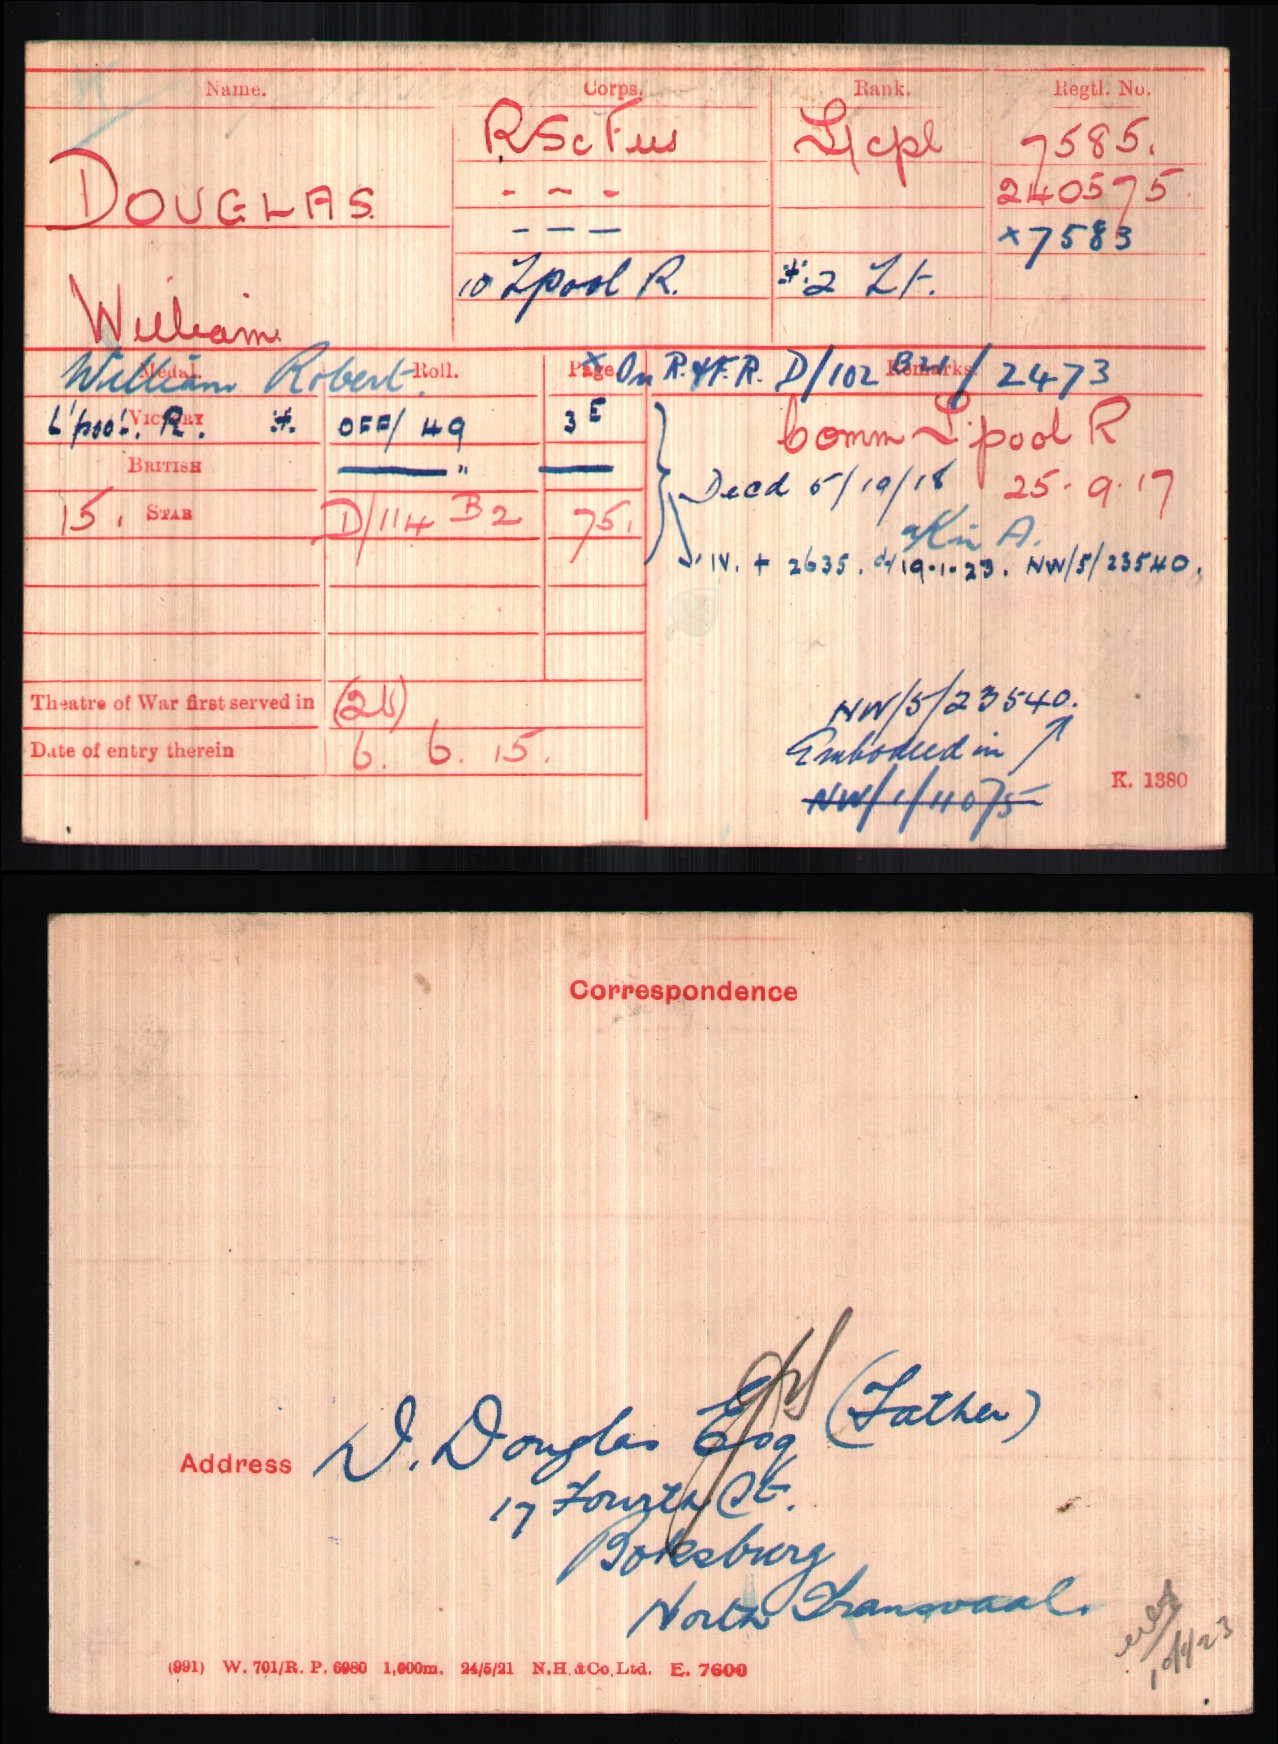 Name. Corps. Rank. Regtl. No.
DOUGLAS R Sc Fus L/cpl 7585.
- ~ - 240575.
- - - x7583
William 10 L'pool R. *2 Lt.
William Robert.
Medal. Roll. Page. x On R. & F. R. D/102 B21 / 2473 Remarks.
L'pool. R. *. VICTORY OFF/ 49 3 E Comm L'pool R
BRITISH " Decd 5/10/18 25.9.17
15. STAR D/114 B2 75.
IV. + 2635. d/19.1.23. NW/5/23540.
Theatre of War first served in (2b)
Date of entry therein 6. 6. 15.
NW/5/23540.
Embodied in
NW/1/11075
K. 1380
Correspondence
Address D. Douglas Esq (Father)
17 Fourth St.
Boksburg
North Transvaal.
(991) W. 701/R. P. 6980 1,000m. 24/5/21 N.H.&Co.Ltd. E. 7600